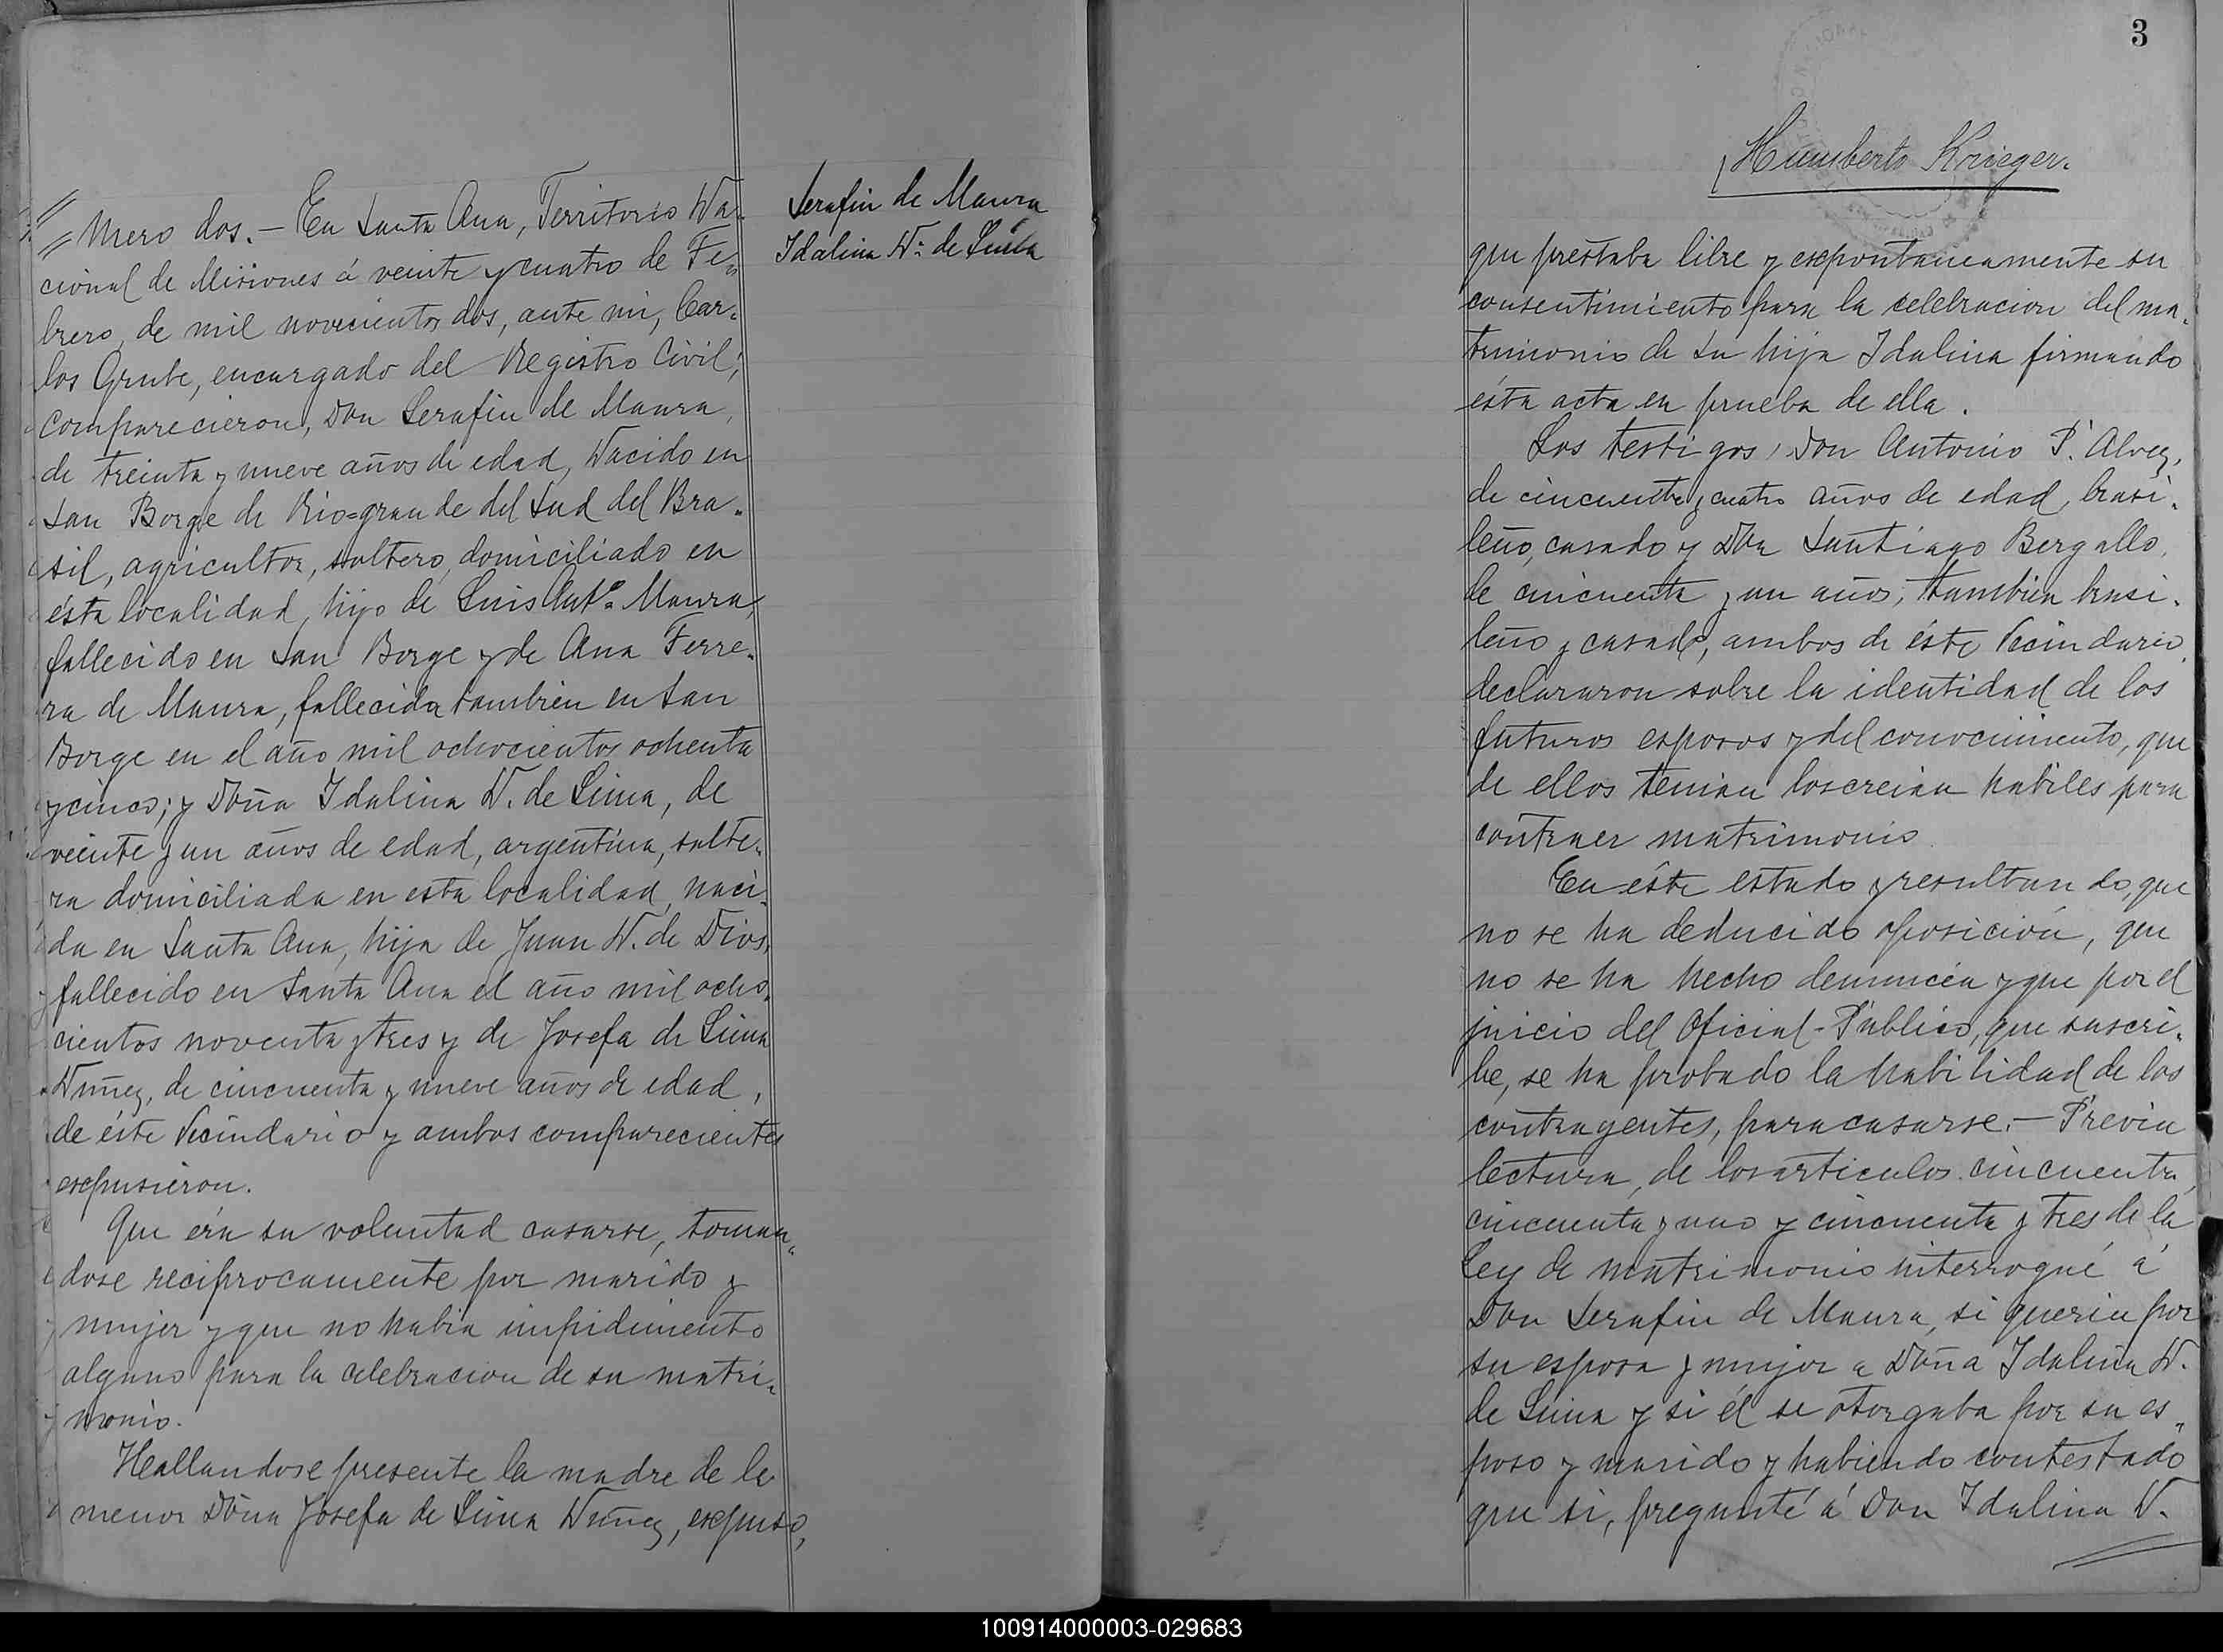 mero dos.- En Santa Ana, Territorio Na-
cional de Misiones á veinte y cuatro de Fe-
brero, de mil novecientos dos, ante mi, Car-
los Grube, encargado del Registro Civil;
comparecieron, Don Serafin de Maura,
de treinta y nueve años de edad, Nacido en
San Borge de Rio=grande del Sud del Bra-
sil, agricultor, soltero, domiciliado en
ésta localidad, hijo de Luis Antº Maura,
fallecido en San Borge y de Ana Ferre-
ra de Maura, fallecida tambien en San
Borge en el año mil ochocientos ochenta
y cinco; y Doña Idalina N. de Lima, de
veinte y un años de edad, argentina, solte-
ra domiciliada en esta localidad, naci-
da en Santa Ana, hija de Juan N. de Dios,
fallecido en Santa Ana el año mil ocho-
cientos noventa y tres y de Josefa de Lima
Nuñez, de cincuenta y nueve años de edad,
de éste Vecindario y ambos comparecientes
expusieron.
Que éra su voluntad casarse, toman-
dose reciprocamente por marido y
mujer y que no habia impidimento
alguno para la celebracion de su matri-
monio.
Heallandose presente la madre de la
menor Doña Josefa de Lima Nuñez, expuso,
Serafin de Maura
Idalina N. de Lima
3
Humberto Krieger.
que prestaba libre y expontaneamente su
consentimiento para la celebracion del ma-
trimonio de su hija Idalina firmando
ésta acta en prueba de ella.
Los testigos, Don Antonio P. Alvez,
de cincuenta y cuatro años de edad, brasi-
leño, casado y Don Santiago Bergallo,
de cincuenta y un años, tambien brasi-
leño y casado, ambos de éste Vecindario,
declararon sobre la identidad de los
futuros esposos y del conocimiento, que
de ellos tenian los creian habiles para
contraer matrimonio
En éste estado y resultando, que
no se ha deducido oposición, que
no se ha hecho denuncia y que por el
juicio del Oficial-Público, que suscri-
be, se ha probado la habilidad de los
contrayentes, para casarse.- Previa
lectura, de los articulos cincuenta,
cincuenta y uno y cincuenta y tres de la
Ley de matrimonio interrogué á
Don Serafin de Maura, si queria por
su esposa y mujer a Doña Idalina N.
de Lima y si él se otorgaba por su es-
poso y marido y habiendo contestado
que si, pregunté á Don Idalina N.
100914000003-029683